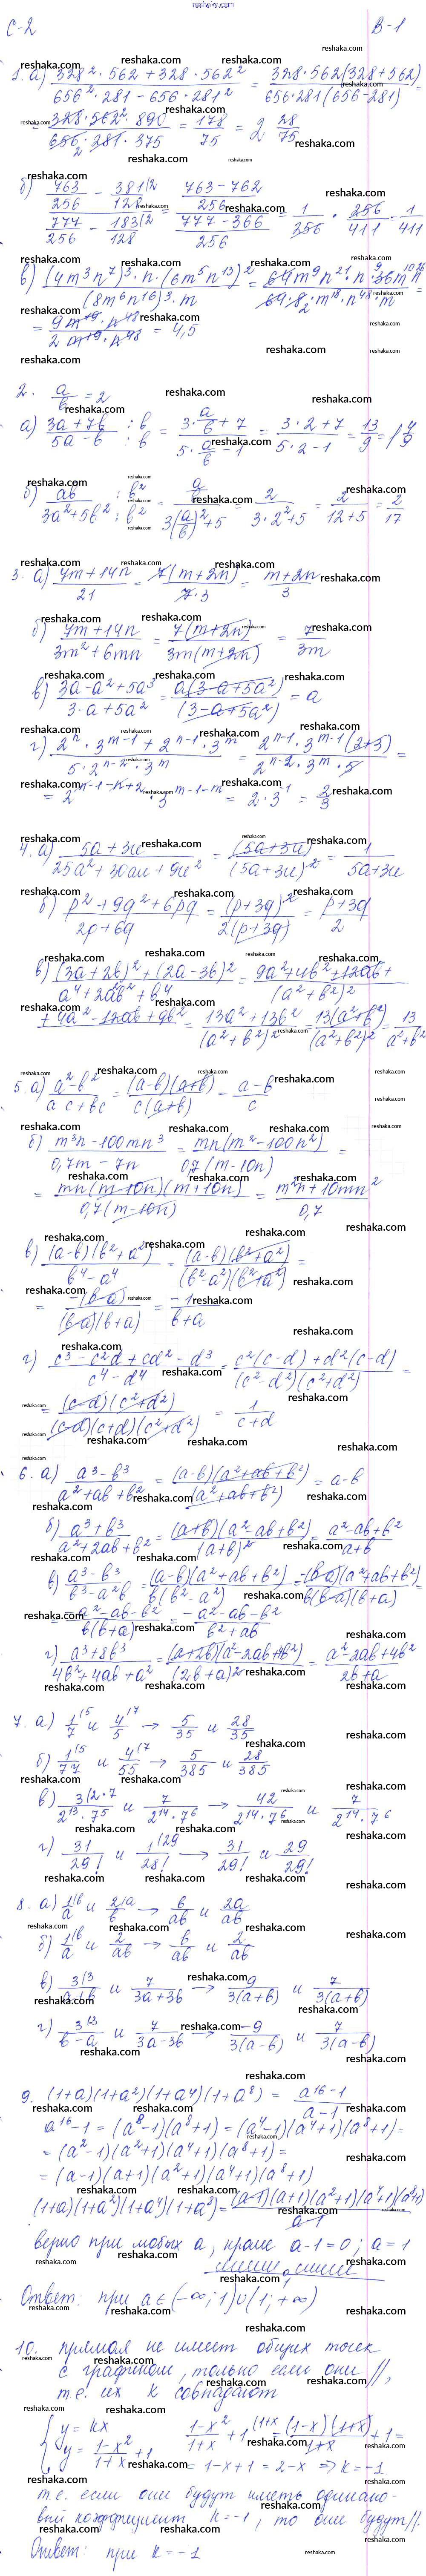 reshaka.com
С-2 В-1
1. а) (328²·562+328·562²)/(656²·281-656·281²) = (328·562(328+562))/(656·281(656-281)) =
= (328·562²·890)/(656·281·375) = 178/75 = 2 28/75
б) (763/256 - 381/128)/(777/256 - 183/128) = ((763-762)/256)/((777-366)/256) = 1/256 · 256/411 = 1/411
в) ((4m³n⁷)³·n·(6m⁵n¹³)²)/((8m⁶n¹⁶)³·m) = (64m⁹n²¹·n·36m¹⁰n²⁶)/(64·8·m¹⁸·n⁴⁸·m) =
= (9m¹⁹·n⁴⁸)/(2m¹⁹·n⁴⁸) = 4,5
2. a/b = 2
а) (3a+7b)/(5a-b) :b/:b = (3·a/b+7)/(5·a/b-1) = (3·2+7)/(5·2-1) = 13/9 = 1 4/9
б) ab/(3a²+5b²) :b²/:b² = (a/b)/(3(a/b)²+5) = 2/(3·2²+5) = 2/(12+5) = 2/17
3. а) (7m+14n)/21 = 7(m+2n)/(7·3) = (m+2n)/3
б) (7m+14n)/(3m²+6mn) = 7(m+2n)/(3m(m+2n)) = 7/(3m)
в) (3a-a²+5a³)/(3-a+5a²) = a(3-a+5a²)/(3-a+5a²) = a
г) (2ⁿ·3ᵐ⁻¹+2ⁿ⁻¹·3ᵐ)/(5·2ⁿ⁻²·3ᵐ) = (2ⁿ⁻¹·3ᵐ⁻¹(2+3))/(2ⁿ⁻²·3ᵐ·5) =
= 2ⁿ⁻¹⁻ⁿ⁺²·3ᵐ⁻¹⁻ᵐ = 2·3⁻¹ = 2/3
4. а) (5a+3u)/(25a²+30au+9u²) = (5a+3u)/(5a+3u)² = 1/(5a+3u)
б) (p²+9q²+6pq)/(2p+6q) = (p+3q)²/(2(p+3q)) = (p+3q)/2
в) ((3a+2b)²+(2a-3b)²)/(a⁴+2a²b²+b⁴) = (9a²+4b²+12ab+
+4a²-12ab+9b²)/(a²+b²)² = (13a²+13b²)/(a²+b²)² = 13(a²+b²)/(a²+b²)² = 13/(a²+b²)
5. а) (a²-b²)/(ac+bc) = (a-b)(a+b)/(c(a+b)) = (a-b)/c
б) (m³n-100mn³)/(0,7m-7n) = mn(m²-100n²)/(0,7(m-10n)) =
= mn(m-10n)(m+10n)/(0,7(m-10n)) = (m²n+10mn²)/0,7
в) (a-b)(b²+a²)/(b⁴-a⁴) = (a-b)(b²+a²)/((b²-a²)(b²+a²)) =
= -(b-a)/((b-a)(b+a)) = -1/(b+a)
г) (c³-c²d+cd²-d³)/(c⁴-d⁴) = (c²(c-d)+d²(c-d))/((c²-d²)(c²+d²)) =
= (c-d)(c²+d²)/((c-d)(c+d)(c²+d²)) = 1/(c+d)
6. а) (a³-b³)/(a²+ab+b²) = (a-b)(a²+ab+b²)/(a²+ab+b²) = a-b
б) (a³+b³)/(a²+2ab+b²) = (a+b)(a²-ab+b²)/(a+b)² = (a²-ab+b²)/(a+b)
в) (a³-b³)/(b³-a²b) = (a-b)(a²+ab+b²)/(b(b²-a²)) = -(b-a)(a²+ab+b²)/(b(b-a)(b+a)) =
= (-a²-ab-b²)/(b(b+a)) = (-a²-ab-b²)/(b²+ab)
г) (a³+8b³)/(4b²+4ab+a²) = (a+2b)(a²-2ab+4b²)/(2b+a)² = (a²-2ab+4b²)/(2b+a)
7. а) 1/7 и 4/5 → 5/35 и 28/35
б) 1/77 и 4/55 → 5/385 и 28/385
в) 3/(2¹³·7⁵) и 7/(2¹⁴·7⁶) → 42/(2¹⁴·7⁶) и 7/(2¹⁴·7⁶)
г) 31/29! и 1/28! → 31/29! и 29/29!
8. а) 1/a и 2/b → b/ab и 2a/ab
б) 1/a и 2/ab → b/ab и 2/ab
в) 3/(a+b) и 7/(3a+3b) → 9/(3(a+b)) и 7/(3(a+b))
г) 3/(b-a) и 7/(3a-3b) → -9/(3(a-b)) и 7/(3(a-b))
9. (1+a)(1+a²)(1+a⁴)(1+a⁸) = (a¹⁶-1)/(a-1)
a¹⁶-1 = (a⁸-1)(a⁸+1) = (a⁴-1)(a⁴+1)(a⁸+1) =
= (a²-1)(a²+1)(a⁴+1)(a⁸+1) =
= (a-1)(a+1)(a²+1)(a⁴+1)(a⁸+1)
(1+a)(1+a²)(1+a⁴)(1+a⁸) = (a-1)(a+1)(a²+1)(a⁴+1)(a⁸+1)/(a-1)
верно при любых a, кроме a-1=0; a=1
Ответ: при a∈(-∞;1)∪(1;+∞)
10. прямая не имеет общих точек
с графиком, только если они //,
т.е. их k совпадают
{ y=kx
y=(1-x²)/(1+x)+1
(1-x²)/(1+x)+1 = (1-x)(1+x)/(1+x)+1 =
= 1-x+1 = 2-x ⇒ k=-1
т.е. если они будут иметь одинако-
вый коэффициент k=-1, то они будут //.
Ответ: при k=-1